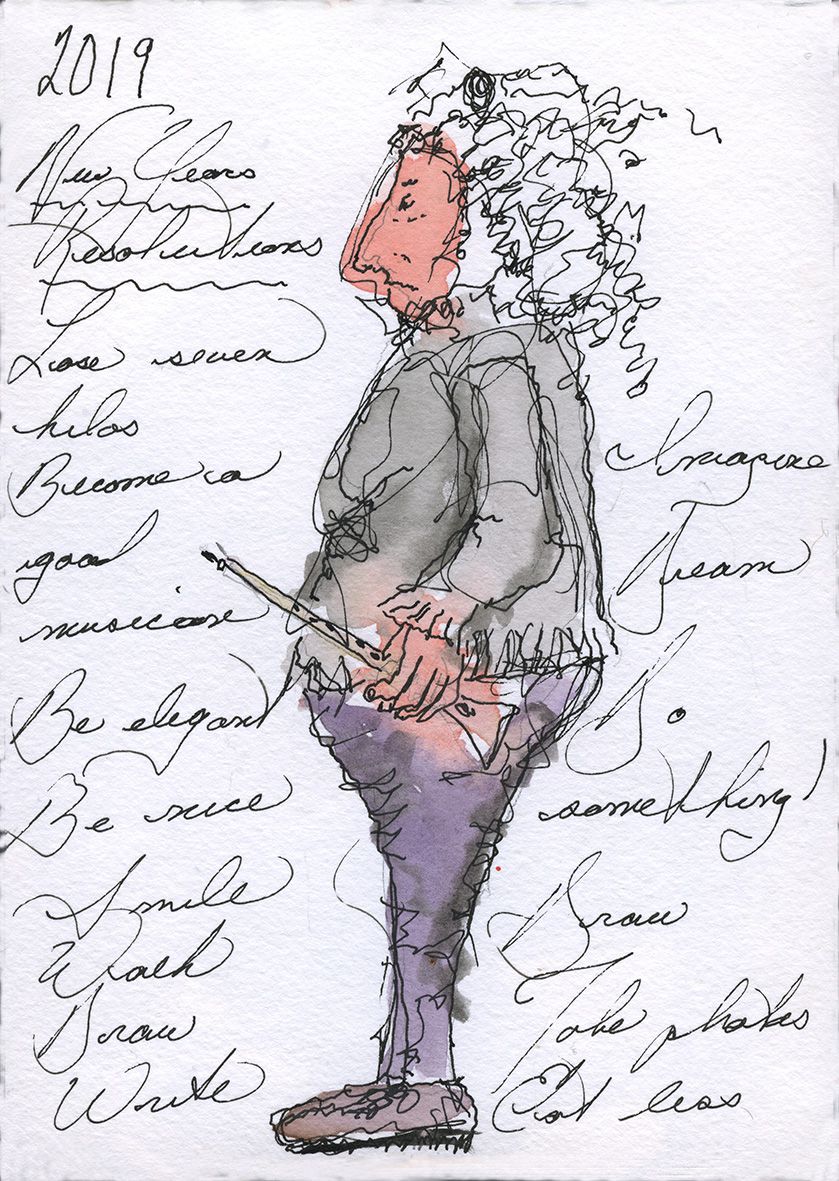 2019
New Years
Resolutions
Lose seven
kilos
Become a
good
musician
Be elegant
Be nice
Smile
Walk
Draw
Write
Imagine
Dream
Do
something!
Draw
Take photos
Eat less